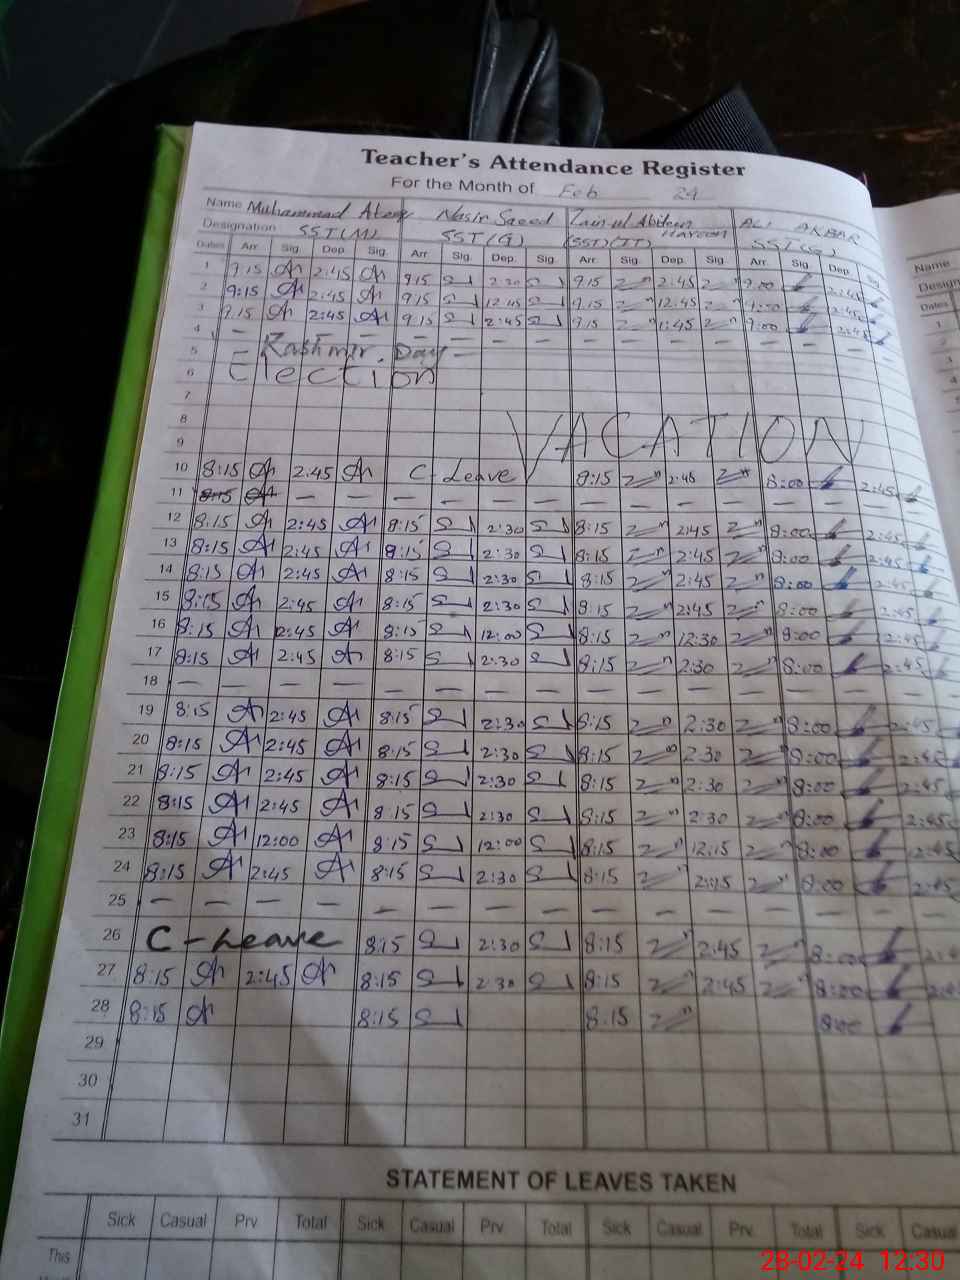 Teacher's Attendance Register
For the Month of Feb 24
Name Muhammad Nasir Saeed Zain ul Abideen ALI AKBAR
Designation SST(M) SST(G) (SST)(IT) SST(G)
Dates Arr. Sig. Dep. Sig. Arr. Sig. Dep. Sig. Arr. Sig. Dep. Sig. Arr. Sig. Dep. Sig.
1 9:15 2:45 9:15 2:30 9:15 2:45 9:00 2:45
2 9:15 2:45 9:15 12:45 9:15 12:45 9:00 2:45
3 9:15 2:45 9:15 2:45 9:15 1:45 9:00 2:45
4 — — — — — — — — — — — —
5 Kashmir Day
6 Election
7
8 VACATION
9
10 8:15 2:45 C-Leave 8:15 2:45 8:00 2:45
11 8:15 — — — — — — — — — —
12 8:15 2:45 8:15 2:30 8:15 2:45 8:00 2:45
13 8:15 2:45 8:15 2:30 8:15 2:45 8:00 2:45
14 8:15 2:45 8:15 2:30 8:15 2:45 8:00 2:45
15 8:15 2:45 8:15 2:30 8:15 2:45 8:00 2:45
16 8:15 2:45 8:15 12:00 8:15 12:30 8:00 2:45
17 8:15 2:45 8:15 2:30 8:15 2:30 8:00 2:45
18 — — — — — — — — — — — —
19 8:15 2:45 8:15 2:30 8:15 2:30 8:00 2:45
20 8:15 2:45 8:15 2:30 8:15 2:30 8:00 2:45
21 8:15 2:45 8:15 2:30 8:15 2:30 8:00 2:45
22 8:15 2:45 8:15 2:30 8:15 2:30 8:00 2:45
23 8:15 12:00 8:15 12:00 8:15 12:15 8:00 12:45
24 8:15 2:45 8:15 2:30 8:15 8:00 2:45
25 — — — — — — — — — — — —
26 C-Leave 8:15 2:30 8:15 2:45 8:00
27 8:15 2:45 8:15 2:30 8:15 2:45 8:00
28 8:15 8:15 8:15 8:00
29
30
31
STATEMENT OF LEAVES TAKEN
Sick Casual Prv. Total Sick Casual Prv. Total Sick Casual Prv. Total Sick Casual
This
Name
Dates
1
2
3
4
28-02-24 12:30